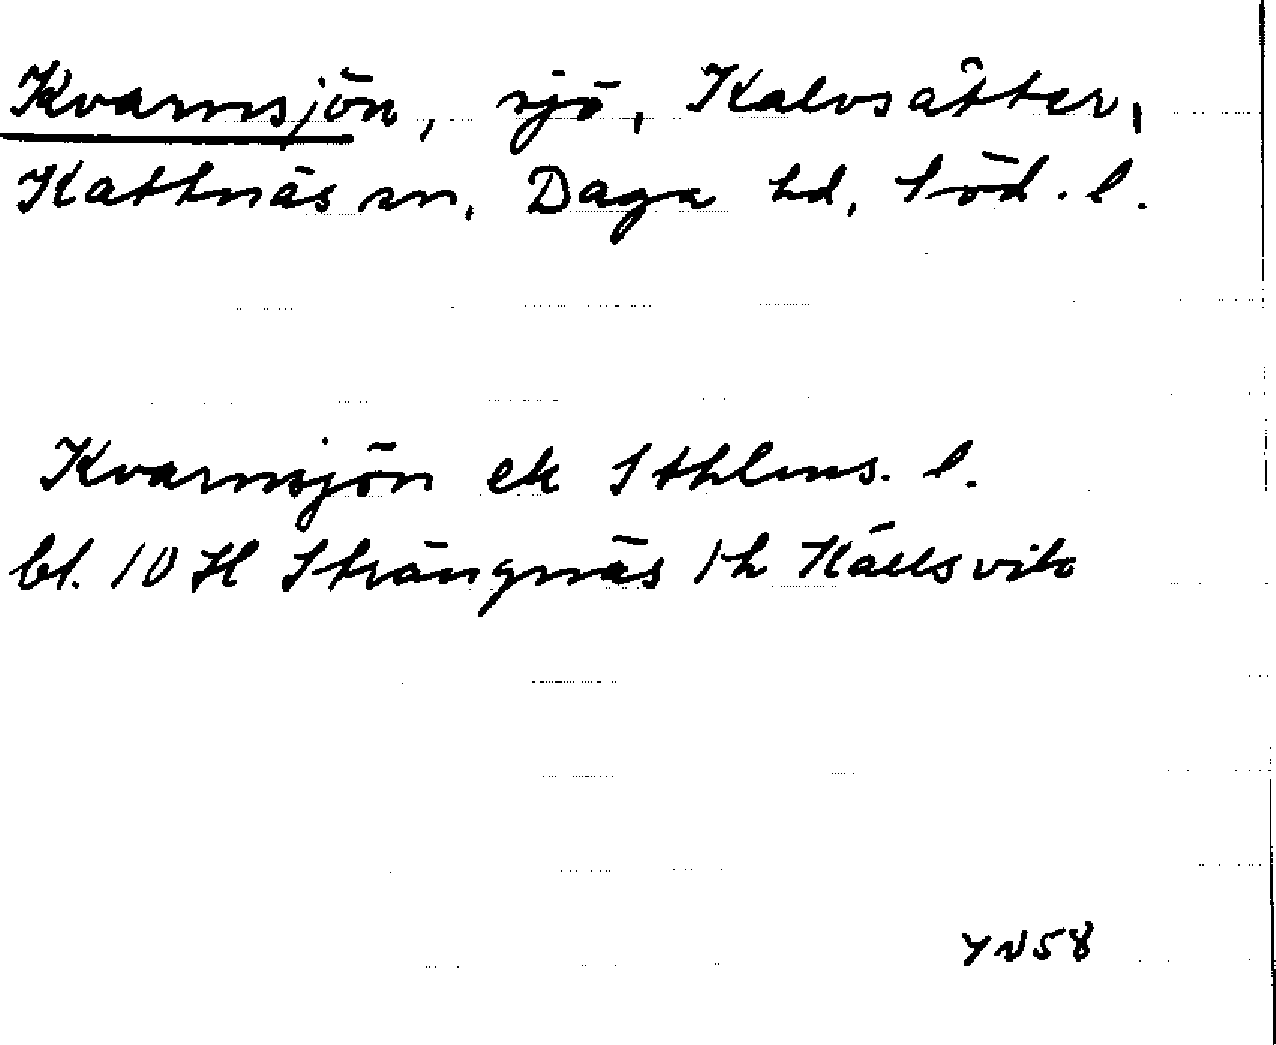 Kvarnsjön, sjö, Kalvsätter,
Kattnäs sn, Daga hd, Söd. l.
Kvarnsjön ek Sthlms. l.
bl. 10 H Strängnäs 1 h Hällsvik
YN58